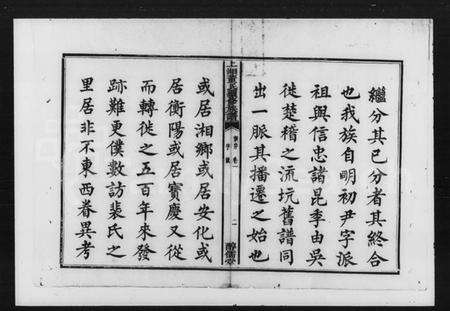 繼分其已分者其終合
也我族自明初尹字派
祖興信忠諸昆季由吳
徙楚稽之流坑舊譜同
出一脈其播遷之始也
上湘董氏續修族譜
醇儒堂
或居湘鄉或居安化或
居衡陽或居寶慶又從
而轉徙之五百年來發
跡難更僕數訪裴氏之
里居非不東西眷異考